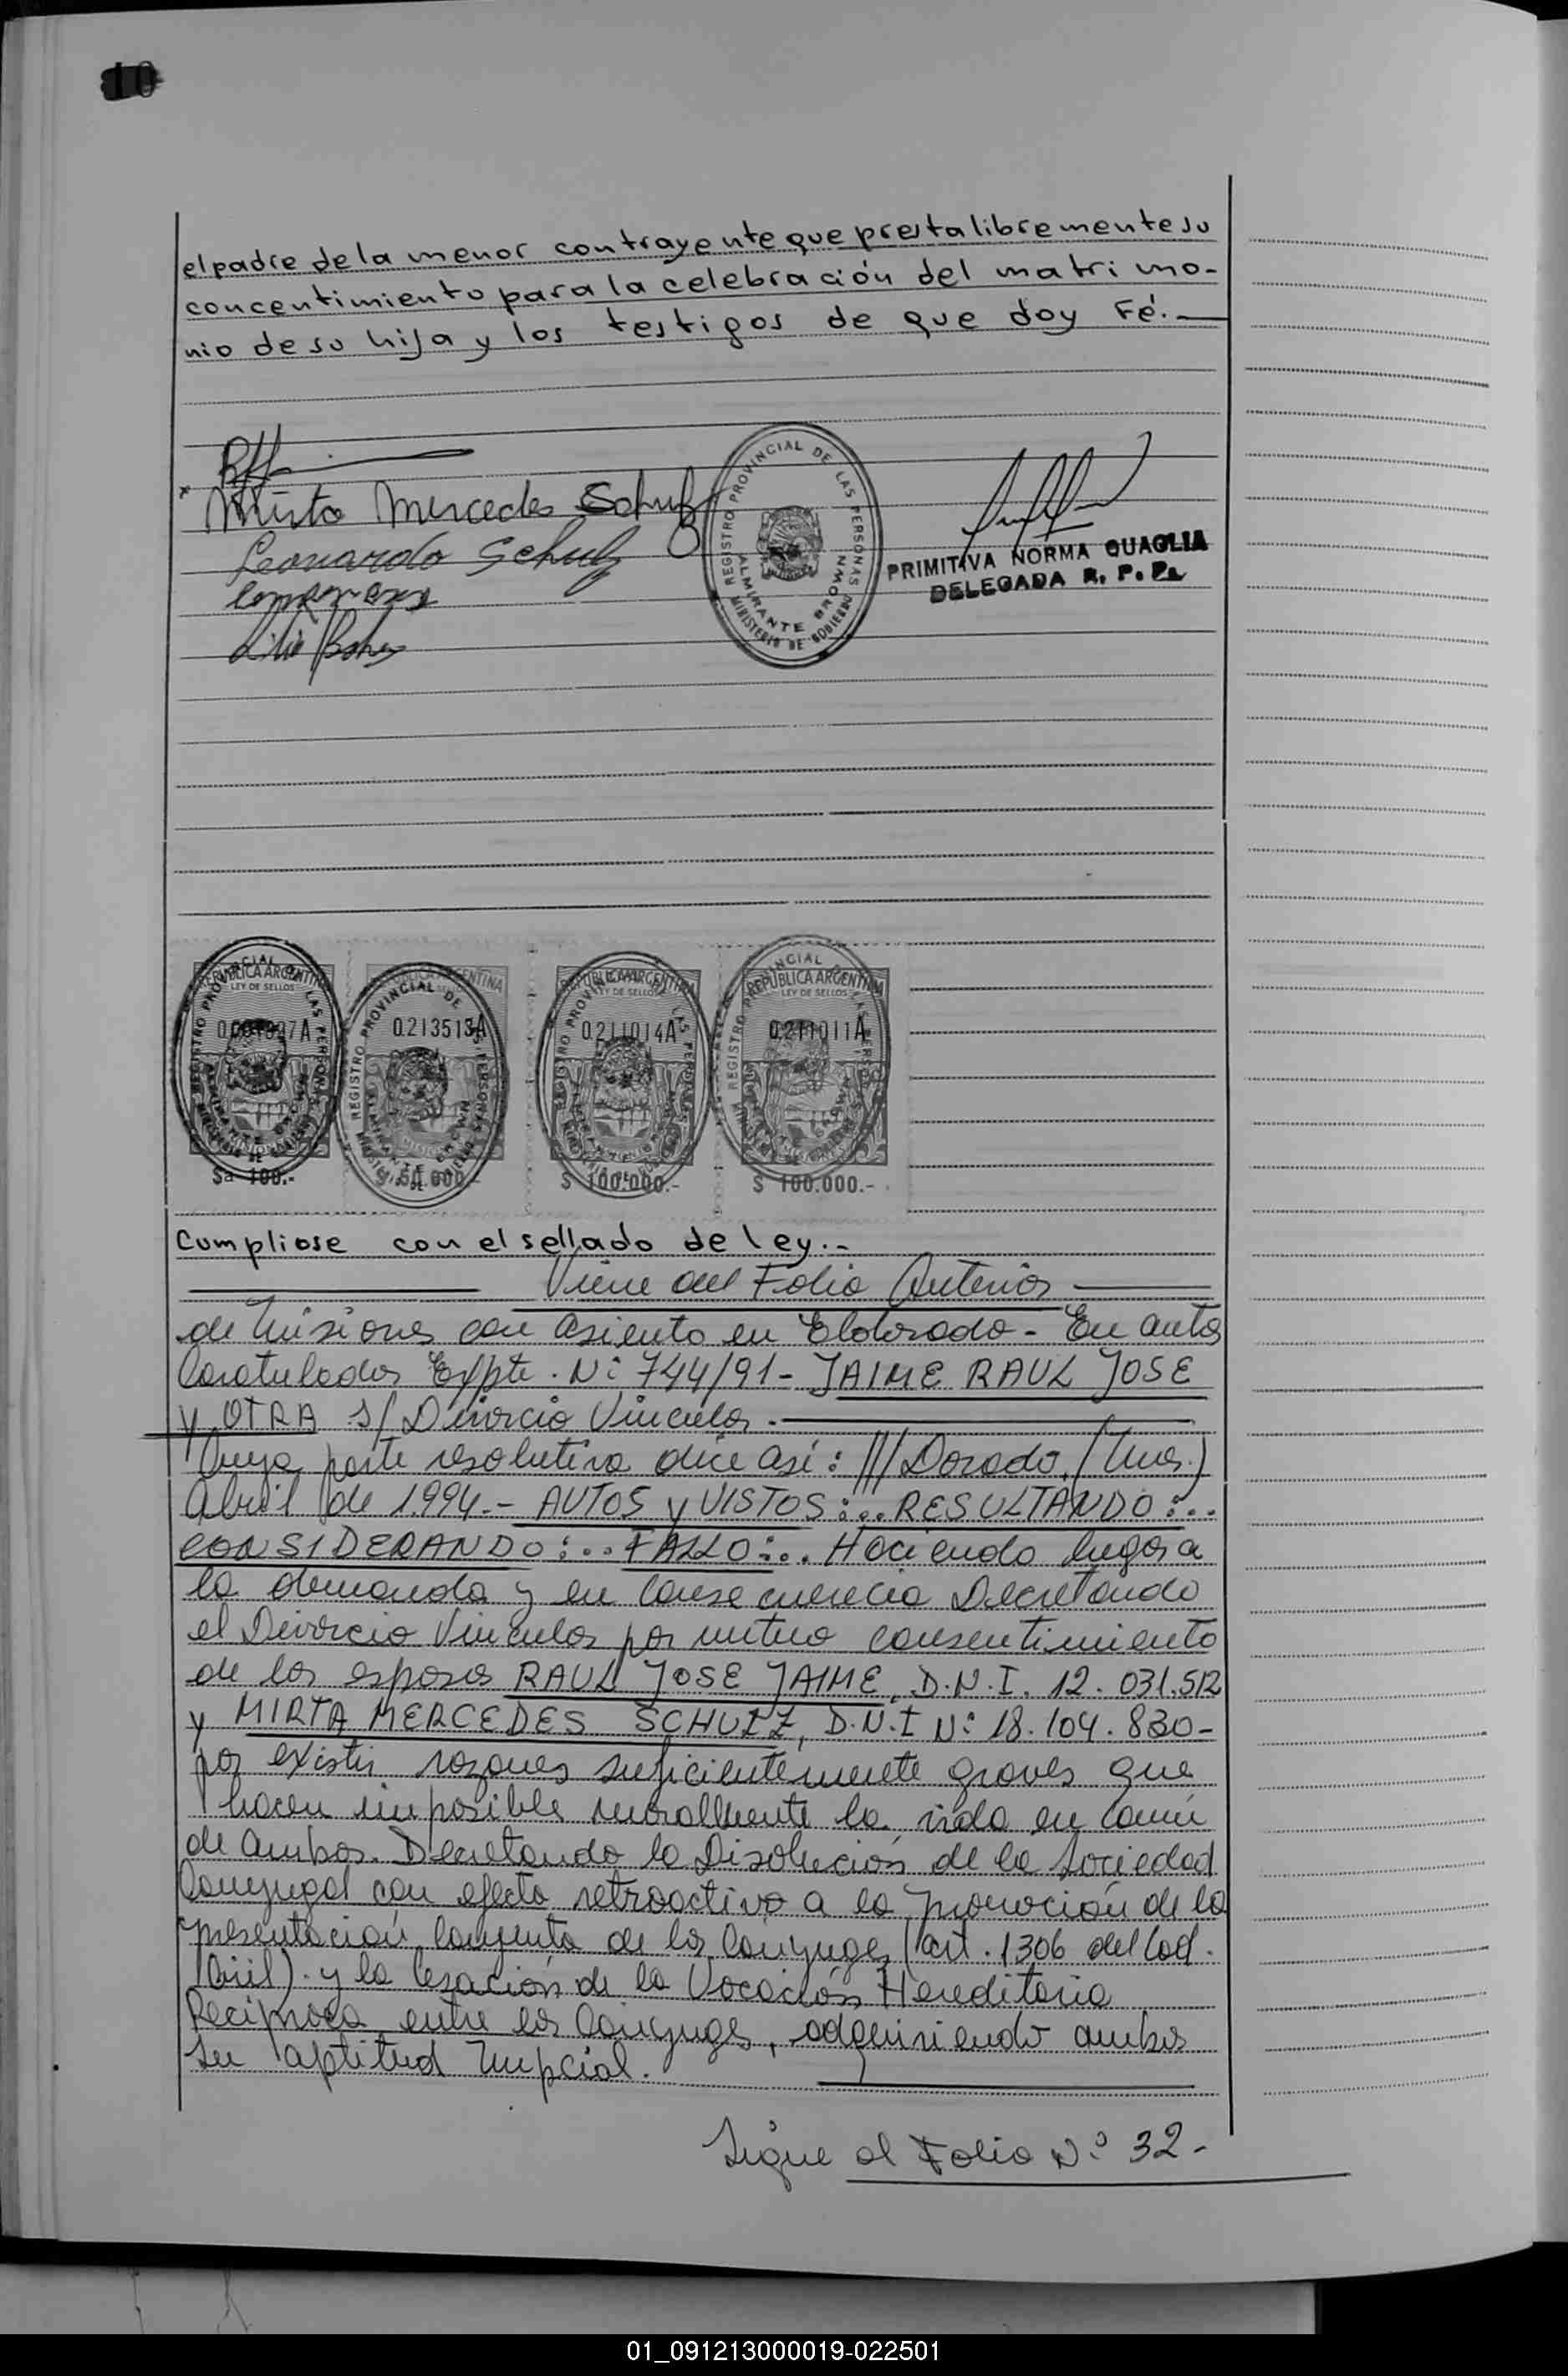 10
el padre de la menor contrayente que presta libremente su
concentimiento para la celebración del matrimo-
nio de su hija y los testigos de que doy Fé.-
Mirta Mercedes Schulz
Leonardo Schulz
REGISTRO PROVINCIAL DE LAS PERSONAS
ALMIRANTE BROWN
MINISTERIO DE GOBIERNO
PRIMITIVA NORMA QUAGLIA
DELEGADA R. P. P.
REPUBLICA ARGENTINA
LEY DE SELLOS
0213513A
0211014A
0211011A
$a 100.-
$ 50.000.-
$ 100.000.-
$ 100.000.-
Cumpliose con el sellado de ley.-
Viene del Folio Anterior
de Misiones con asiento en Eldorado - En autos
Caratulados Expte. Nº 744/91 - JAIME RAUL JOSE
y OTRA s/ Divorcio Vincular.-
Cuya parte resolutiva dice así: ///Dorado, (Mnes.)
Abril de 1.994.- AUTOS y VISTOS:.. RESULTANDO:..
CONSIDERANDO:.. FALLO:.. Haciendo lugar a
la demanda y en consecuencia Decretando
el Divorcio Vincular por mutuo consentimiento
de los esposos RAUL JOSE JAIME, D.N.I. 12.031.512
y MIRTA MERCEDES SCHULZ, D.N.I Nº 18.104.830-
por existir razones suficientemente graves que
hacen imposible moralmente la vida en común
de ambos. Decretando la Disolución de la Sociedad
Conyugal con efecto retroactivo a la promoción de la
presentación conjunta de los Cónyuges (art. 1306 del Cod.
Civil). y la Cesación de la Vocación Hereditaria
Recíproca entre los Cónyuges, adquiriendo ambos
su aptitud Nupcial.
Sigue al Folio Nº 32-
01_091213000019-022501